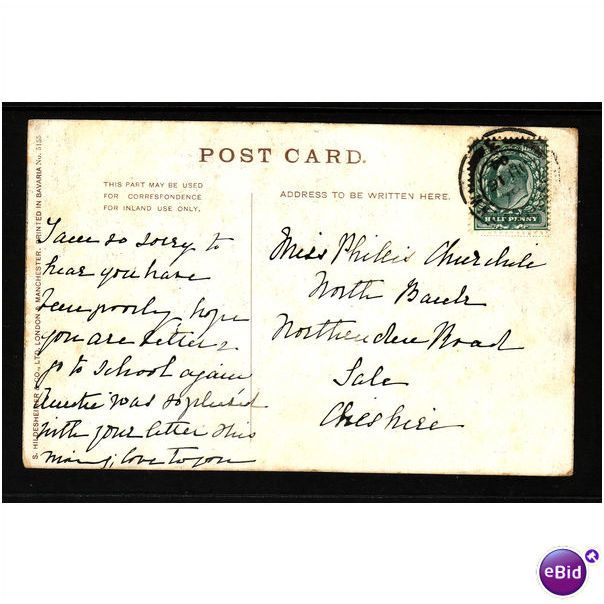 POST CARD.
THIS PART MAY BE USED
FOR CORRESPONDENCE
FOR INLAND USE ONLY.
ADDRESS TO BE WRITTEN HERE.
S. HILDESHEIMER & CO., LTD. LONDON & MANCHESTER. PRINTED IN BAVARIA No. 5155
HALF PENNY
I am so sorry to
hear you have
been poorly, hope
you are better &
go to school again
Auntie was so pleased
with your letter this
love to you
Miss Phillis Churchill
North Bank
Northenden Road
Sale
Cheshire
eBid